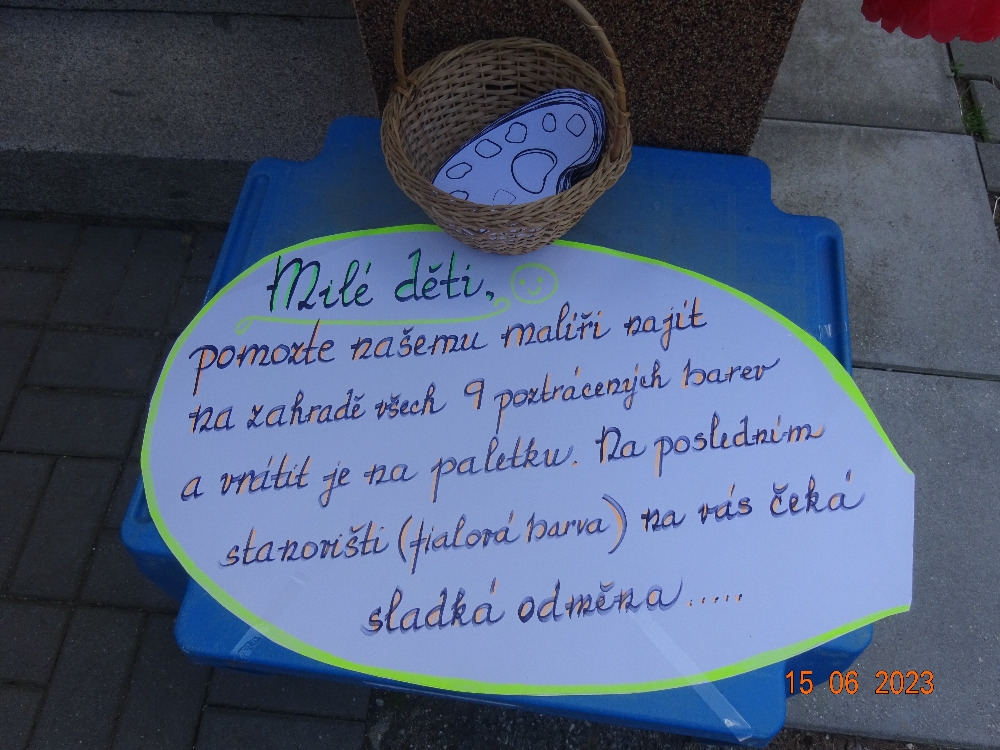 Milé děti,
pomozte našemu malíři najít
na zahradě všech 9 poztrácených barev
a vrátit je na paletku. Na posledním
stanovišti (fialová barva) na vás čeká
sladká odměna.....
15 06 2023